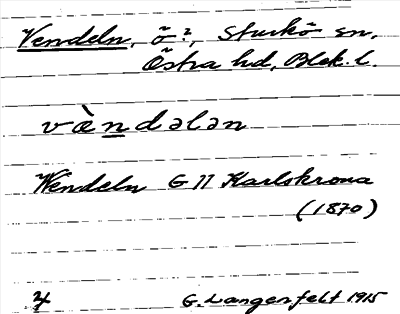 Vendeln, ö?, Sturkö sn,
Östra hd, Blek. l.
vὲndələn
Wendeln G 11 Karlskrona
(1870)
G. Langenfelt 1915